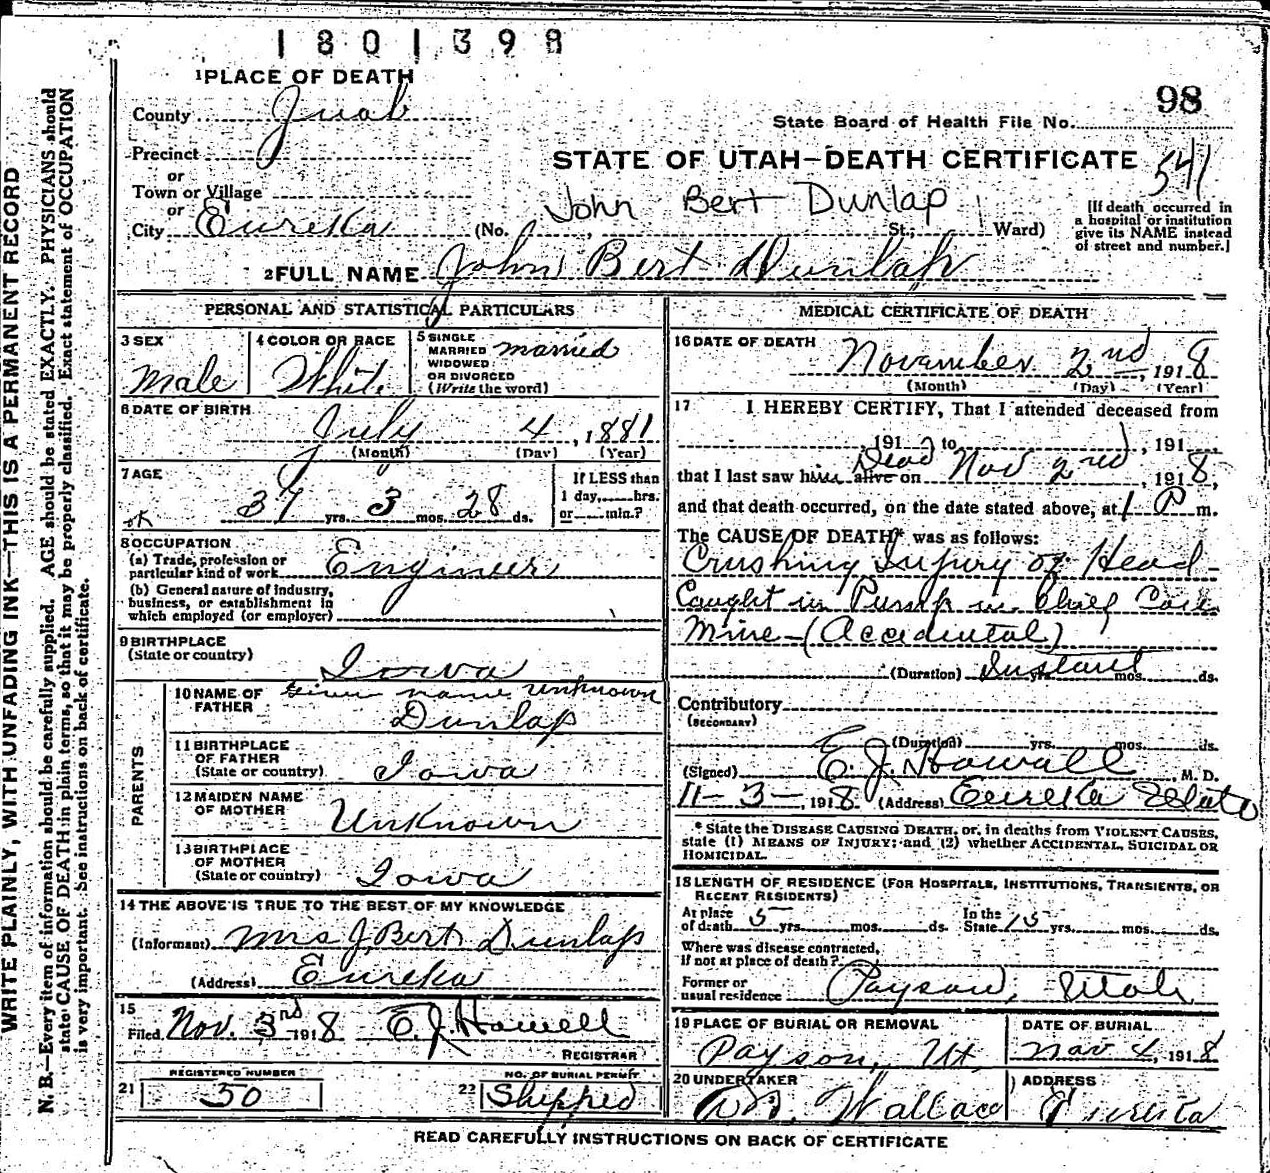 1801398
1 PLACE OF DEATH
98
County Juab
State Board of Health File No.
Precinct
STATE OF UTAH—DEATH CERTIFICATE
541
or
Town or Village
or
John Bert Dunlap
City Eureka (No. , St.; Ward)
[If death occurred in
a hospital or institution
give its NAME instead
of street and number.]
2 FULL NAME John Bert Dunlap
PERSONAL AND STATISTICAL PARTICULARS
3 SEX
Male
4 COLOR OR RACE
White
5 SINGLE
MARRIED
WIDOWED
OR DIVORCED
(Write the word)
married
6 DATE OF BIRTH
July 4, 1881
(Month) (Day) (Year)
7 AGE
37 yrs. 3 mos. 28 ds.
ok
If LESS than
1 day,....hrs.
or....min.?
8 OCCUPATION
(a) Trade, profession or
particular kind of work Engineer
(b) General nature of industry,
business, or establishment in
which employed (or employer)
9 BIRTHPLACE
(State or country)
Iowa
PARENTS
10 NAME OF
FATHER
Given name unknown
Dunlap
11 BIRTHPLACE
OF FATHER
(State or country) Iowa
12 MAIDEN NAME
OF MOTHER
Unknown
13 BIRTHPLACE
OF MOTHER
(State or country) Iowa
14 THE ABOVE IS TRUE TO THE BEST OF MY KNOWLEDGE
(Informant) Mrs J Bert Dunlap
(Address) Eureka
15
Filed Nov. 3rd 1918 E. J. Howell
REGISTRAR
REGISTERED NUMBER
21 50
NO. OF BURIAL PERMIT
22 Shipped
MEDICAL CERTIFICATE OF DEATH
16 DATE OF DEATH
November 2nd, 1918
(Month) (Day) (Year)
17 I HEREBY CERTIFY, That I attended deceased from
, 191 , to , 191
Dead
that I last saw him alive on Nov 2nd, 1918,
and that death occurred, on the date stated above, at 1 P m.
The CAUSE OF DEATH* was as follows:
Crushing Injury of Head
Caught in Pump in Chief Con
Mine—(Accidental)
(Duration) Instant yrs. mos. ds.
Contributory
(SECONDARY)
(Duration) yrs. mos. ds.
(Signed) E. J. Howell, M. D.
11-3-, 1918 (Address) Eureka Utah
* State the DISEASE CAUSING DEATH, or, in deaths from VIOLENT CAUSES,
state (1) MEANS OF INJURY; and (2) whether ACCIDENTAL, SUICIDAL OR
HOMICIDAL.
18 LENGTH OF RESIDENCE (FOR HOSPITALS, INSTITUTIONS, TRANSIENTS, OR
RECENT RESIDENTS)
At place
of death 5 yrs. mos. ds.
In the
State 15 yrs. mos. ds.
Where was disease contracted,
if not at place of death?
Former or
usual residence Payson, Utah
19 PLACE OF BURIAL OR REMOVAL
Payson, Ut,
DATE OF BURIAL
Nov 4, 1918
20 UNDERTAKER
Wallace
ADDRESS
Eureka
READ CAREFULLY INSTRUCTIONS ON BACK OF CERTIFICATE
WRITE PLAINLY, WITH UNFADING INK—THIS IS A PERMANENT RECORD
N. B.—Every item of information should be carefully supplied. AGE should be stated EXACTLY. PHYSICIANS should
state CAUSE OF DEATH in plain terms, so that it may be properly classified. Exact statement of OCCUPATION
is very important. See instructions on back of certificate.